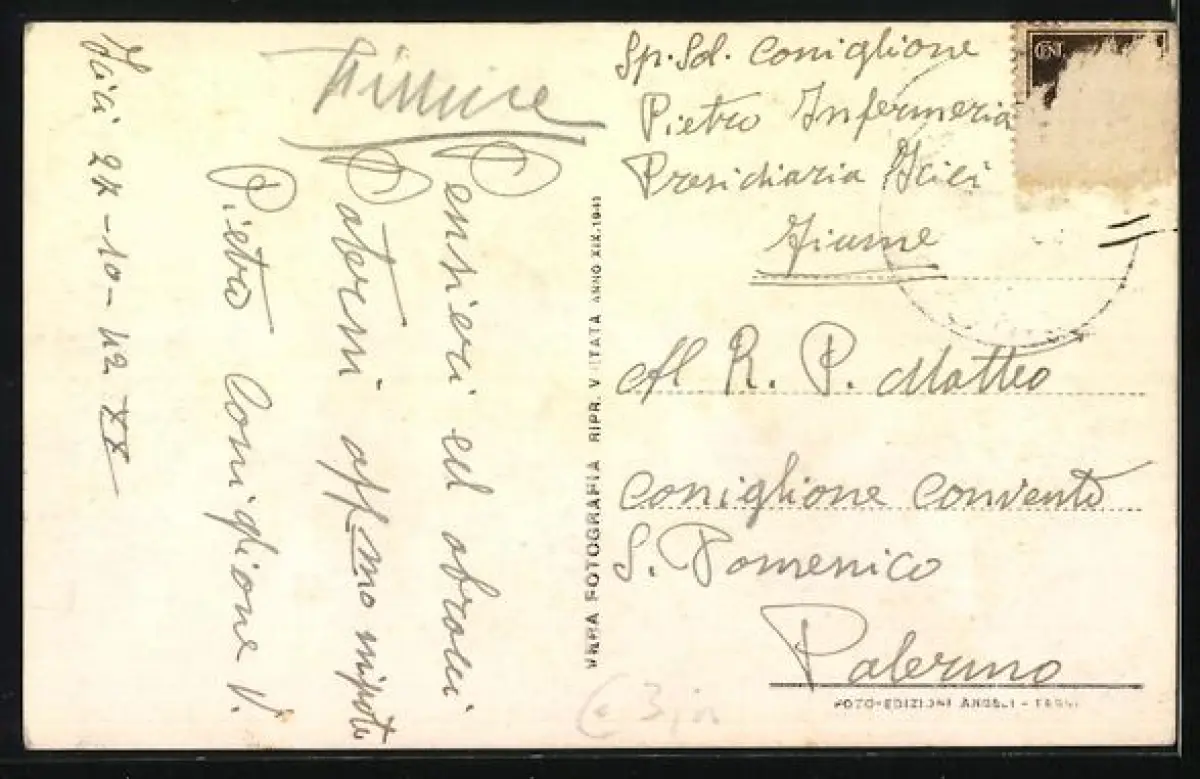 Fiume
Icici 27-10-42 XX
Pensieri ed abracci
Paterni affmo nipote
Pietro Coniglione V.
VERA FOTOGRAFIA RIPR. VIETATA ANNO XIX.1941
Sp. Sol. Coniglione
Pietro Infermeria
Presidiaria Icici
Fiume
Al R. P. Matteo
Coniglione Convento
S. Domenico
Palermo
FOTO-EDIZIONI ANGELI -